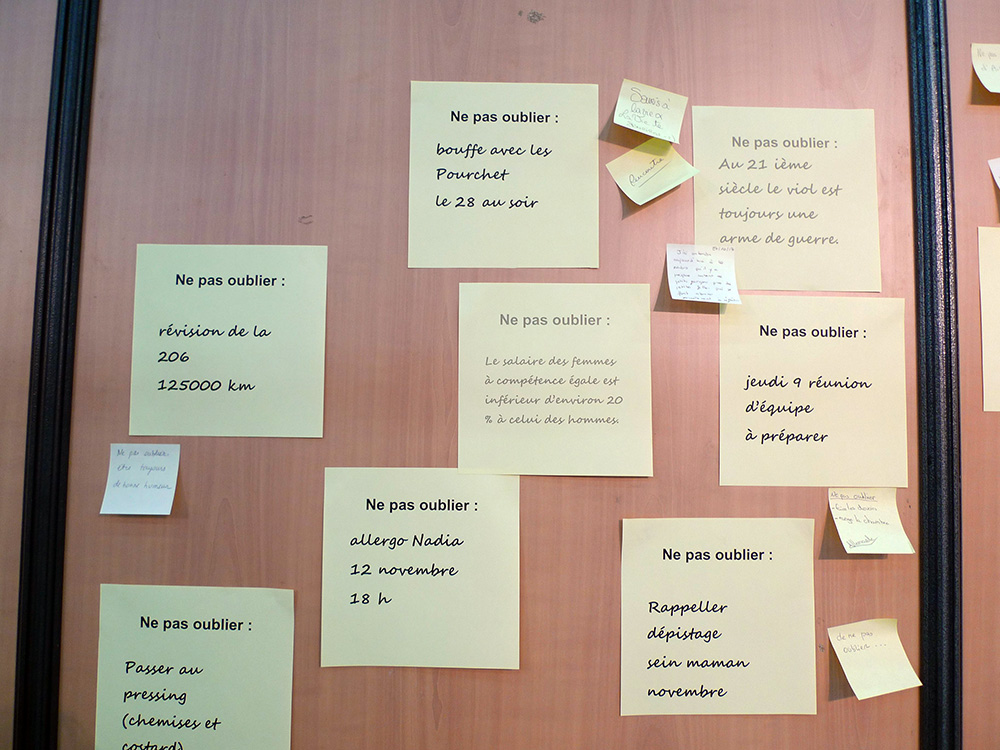 Ne pas oublier :
bouffe avec les
Pourchet
le 28 au soir
Rencontre
Ne pas oublier :
Au 21 ième
siècle le viol est
toujours une
arme de guerre.
Ne pas oublier :
révision de la
206
125000 km
Ne pas oublier :
Le salaire des femmes
à compétence égale est
inférieur d'environ 20
% à celui des hommes.
Ne pas oublier :
jeudi 9 réunion
d'équipe
à préparer
Ne pas oublier
être toujours
de bonne humeur
Ne pas oublier :
allergo Nadia
12 novembre
18 h
Ne pas oublier
Ne pas oublier :
Rappeller
dépistage
sein maman
novembre
de ne pas
oublier ...
Ne pas oublier :
Passer au
pressing
(chemises et
costard)
Ne pas